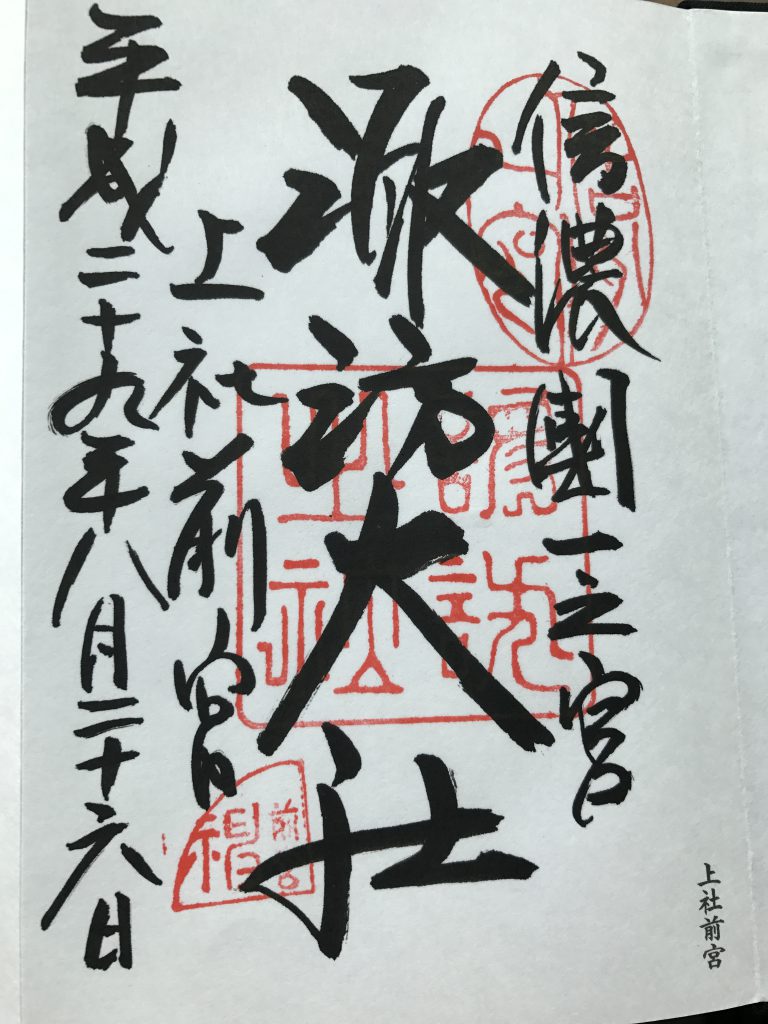 信濃國一之宮
諏訪大社
上社前宮
平成二十九年八月二十六日
諏訪大社
前宮
上社前宮